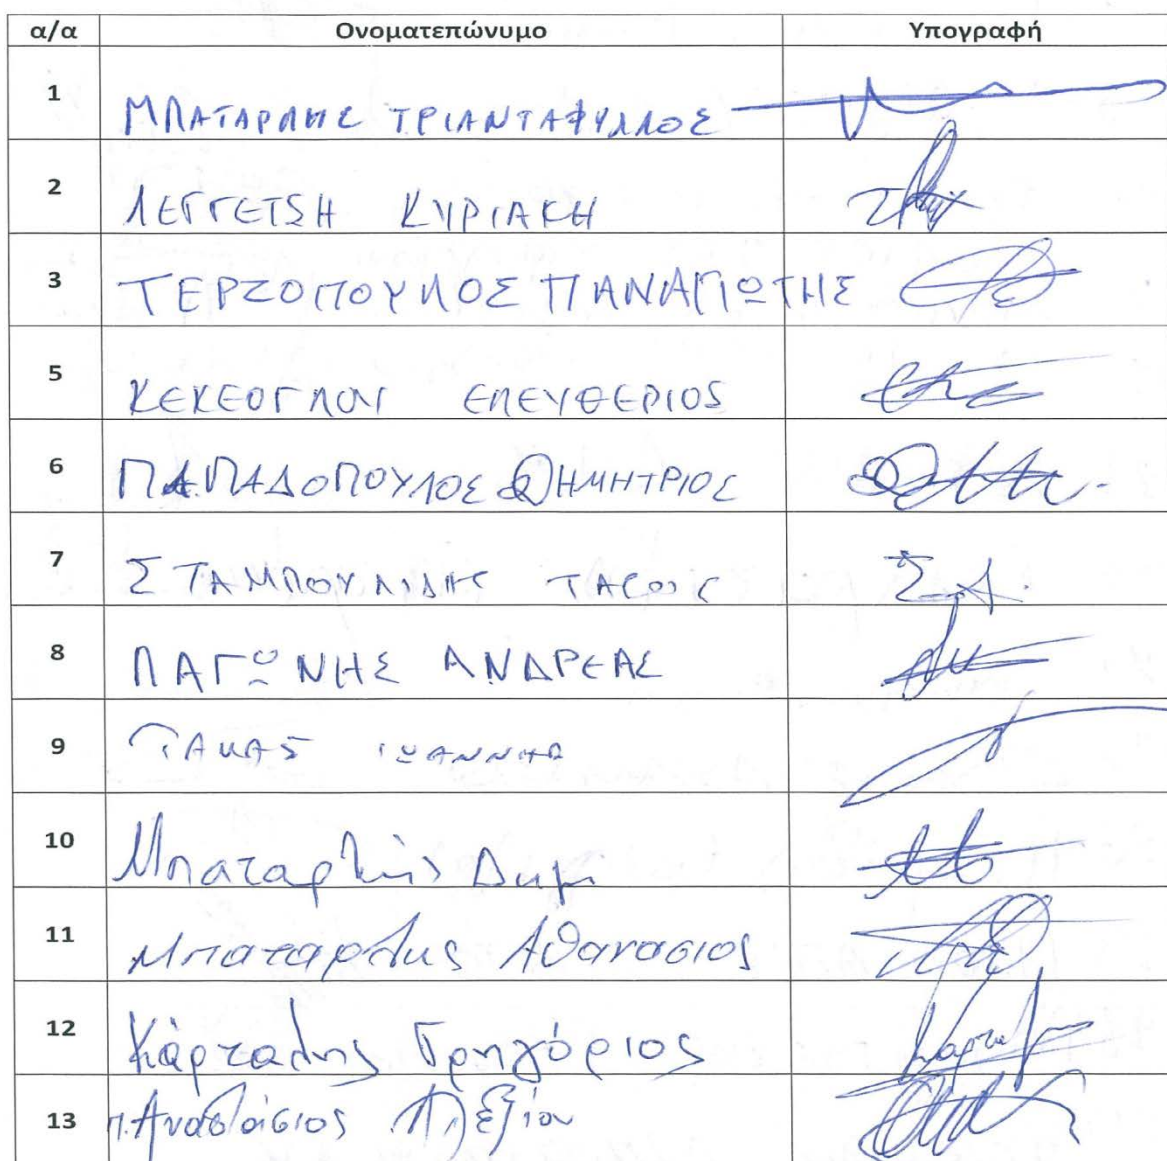 α/α Ονοματεπώνυμο Υπογραφή
1 ΜΠΑΤΑΡΛΗΣ ΤΡΙΑΝΤΑΦΥΛΛΟΣ
2 ΛΕΓΓΕΤΣΗ ΚΥΡΙΑΚΗ
3 ΤΕΡΖΟΠΟΥΛΟΣ ΠΑΝΑΓΙΩΤΗΣ
5 ΚΕΚΕΟΓΛΟΥ ΕΛΕΥΘΕΡΙΟΣ
6 ΠΑΠΑΔΟΠΟΥΛΟΣ ΔΗΜΗΤΡΙΟΣ
7 ΣΤΑΜΠΟΥΛΙΔΗΣ ΤΑΣΟΣ
8 ΠΑΓΩΝΗΣ ΑΝΔΡΕΑΣ
9 ΙΩΑΝΝΗΣ
10 Μπαταρλής Δημ
11 Μπαταρλης Αθανασιος
12 Κάρταλης Γρηγόριος
13 π.Αναστάσιος Αλεξίου